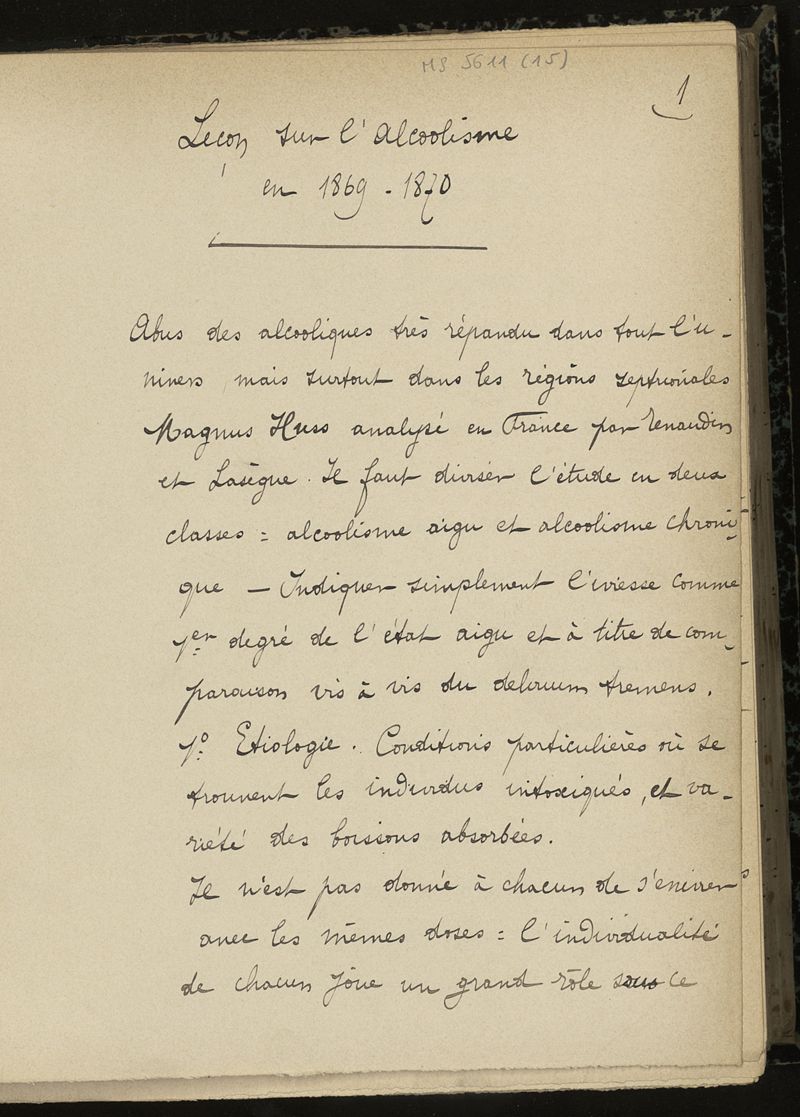 MS 5611 (15)
1
Leçon sur l'alcoolisme
en 1869 - 1870
Abus des alcooliques très répandu dans tout l'u-
nivers, mais surtout dans les régions septrionales
Magnus Huss analysé en France par Renaudin
et Lasègue. Il faut diviser l'étude en deux
classes = alcoolisme aigu et alcoolisme chroni-
que — Indiquer simplement l'ivresse comme
1er degré de l'état aigu et à titre de com-
paraison vis à vis du delirium tremens.
1o. Etiologie. Conditions particulières où se
trouvent les individus intoxiqués, et va-
riété des boissons absorbées.
Il n'est pas donné à chacun de s'enivrer
avec les mêmes doses = l'individualité
de chacun joue un grand rôle sous ce